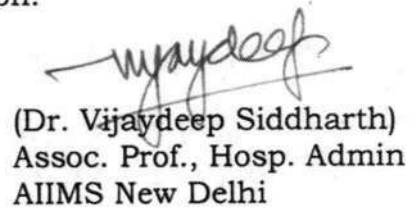 on.
Vijaydeep
(Dr. Vijaydeep Siddharth)
Assoc. Prof., Hosp. Admin
AIIMS New Delhi